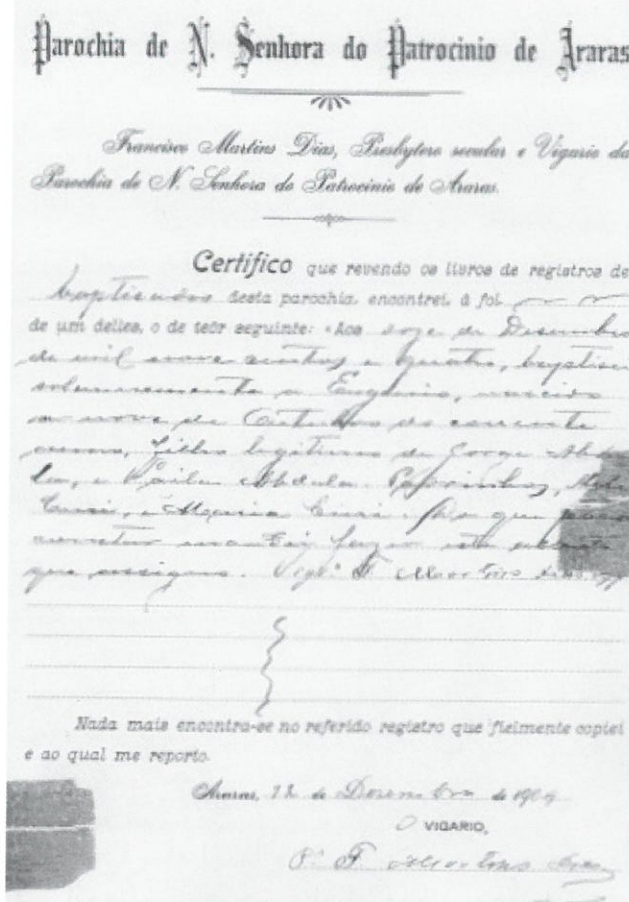 Parochia de N. Senhora do Patrocinio de Araras
Francisco Martins Dias, Presbytero secular e Vigario da
Parochia de N. Senhora do Patrocinio de Araras.
Certifico que revendo os livros de registros de
baptisados desta parochia, encontrei, á fol
de um delles, o de teôr seguinte: «Aos doze de Desembro
de mil nove centos e quatro, baptisei
solemnemente a Eugenio, nascido
a nove de Outubro do corrente
anno, filho legitimo de Jorge Abda
la, e Abdala. Padrinhos,
Curi, e Maria Curi. Do que para
constar mandei fazer este
que assigno. Vigº F. Martins Dias
Nada mais encontra-se no referido registro que fielmente copiei
e ao qual me reporto.
Araras, 12 de Dezembro de 1904
O VIGARIO,
Pe F. Martins Dias